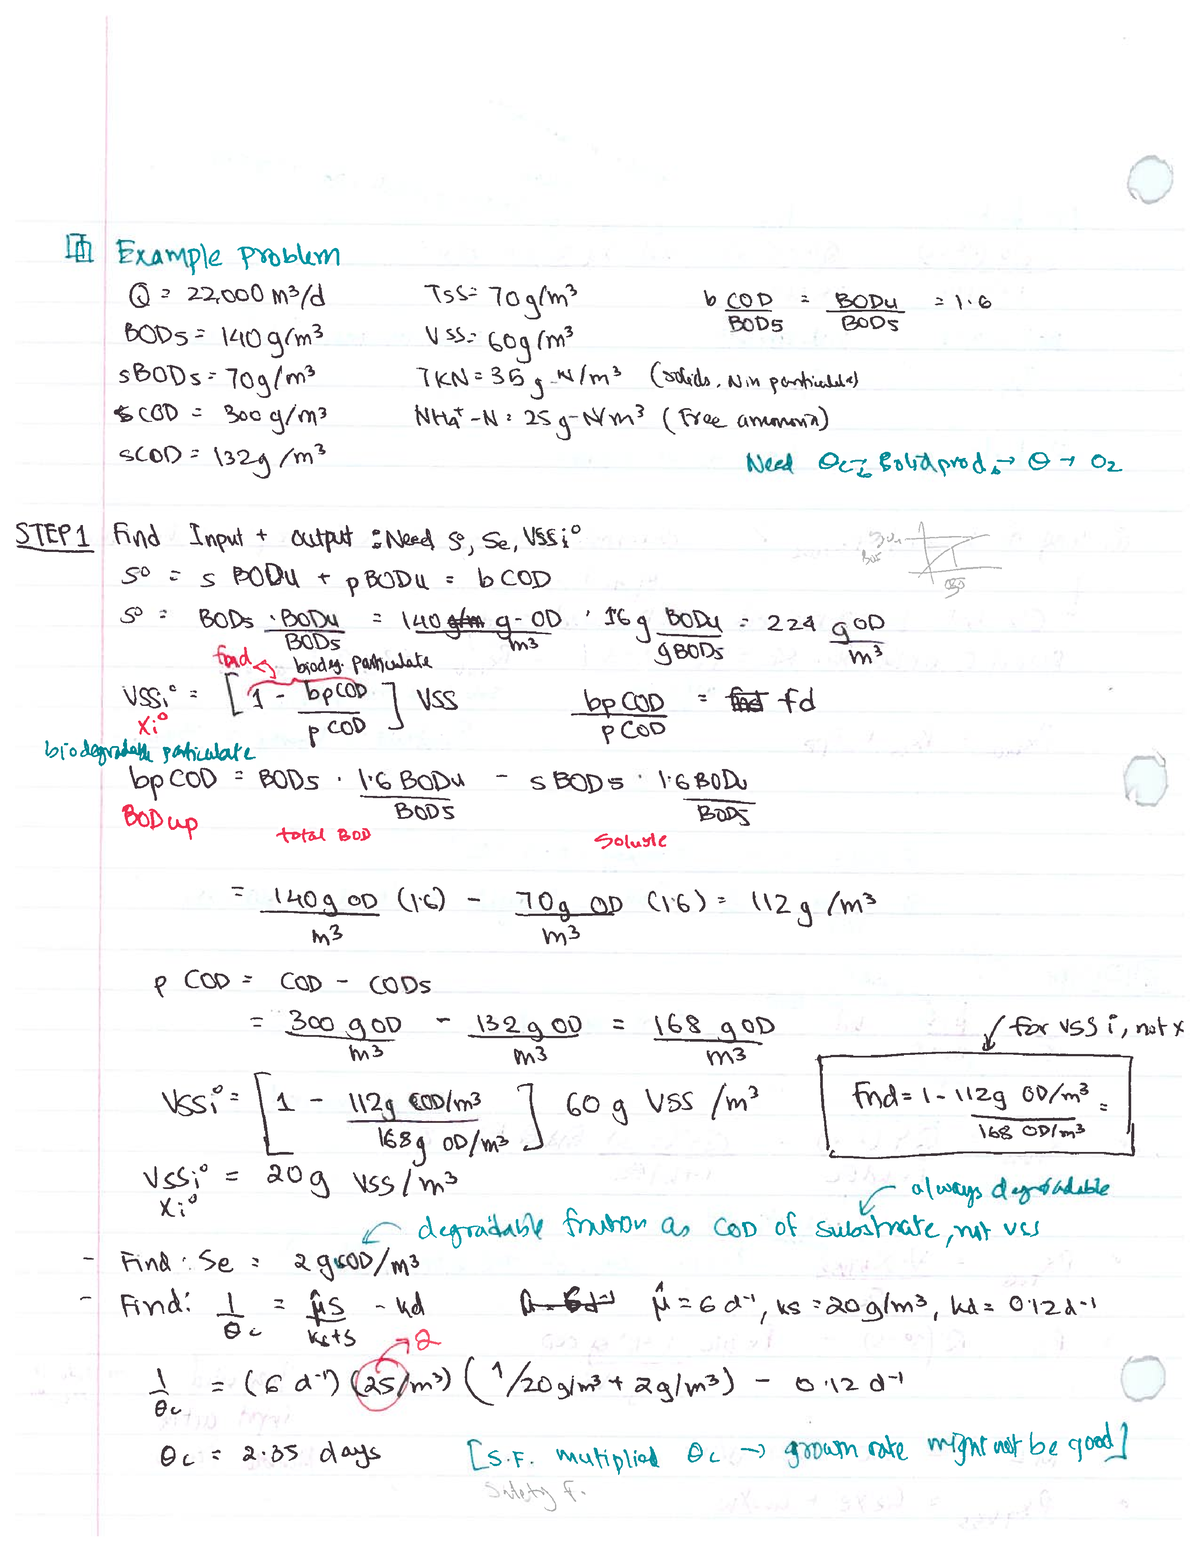 Example problem
Q = 22,000 m³/d TSS = 70 g/m³ b COD/BOD5 = BODu/BOD5 = 1.6
BOD5 = 140 g/m³ VSS = 60 g/m³
sBOD5 = 70 g/m³ TKN = 35 g-N/m³ (solids, N in particulate)
COD = 300 g/m³ NH4⁺-N = 25 g-N/m³ (Free ammonia)
sCOD = 132 g/m³
Need θc → Solid prod. → θ → O2
STEP 1 Find Input + output : Need S°, Se, VSSi°
S° = s BODu + p BODu = b COD
S° = BOD5 · BODu/BOD5 = 140 g-OD/m³ · 1.6 g BODu/g BOD5 = 224 g OD/m³
fnd biodeg. particulate
VSSi° = [1 - bpCOD/pCOD] VSS bpCOD/pCOD = fd
Xi°
biodegradable particulate
bpCOD = BOD5 · 1.6 BODu/BOD5 - sBOD5 · 1.6 BODu/BOD5
BODup total BOD Soluble
= 140 g OD/m³ (1.6) - 70 g OD/m³ (1.6) = 112 g/m³
p COD = COD - CODs
= 300 g OD/m³ - 132 g OD/m³ = 168 g OD/m³
for VSS i, not x
VSSi° = [1 - 112 g COD/m³ / 168 g OD/m³] 60 g VSS/m³ Fnd = 1 - 112 g OD/m³ / 168 OD/m³ =
VSSi° = 20 g VSS/m³
Xi°
always degradable
degradable fraction as COD of substrate, not VSS
- Find: Se = 2 g COD/m³
- Find: 1/θc = μ̂S/Ks+S - kd μ̂ = 6 d⁻¹, ks = 20 g/m³, kd = 0.12 d⁻¹
2
1/θc = (6 d⁻¹)(25/m³)(1/20 g/m³ + 2 g/m³) - 0.12 d⁻¹
θc = 2.35 days [S.F. mutiplied θc → growm rate might not be good]
Safety f.